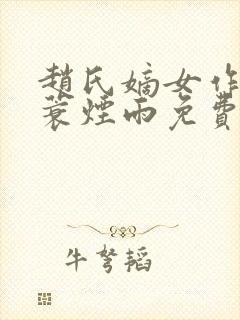 趙氏嫡女作
蓑煙雨免費
牛弩韜